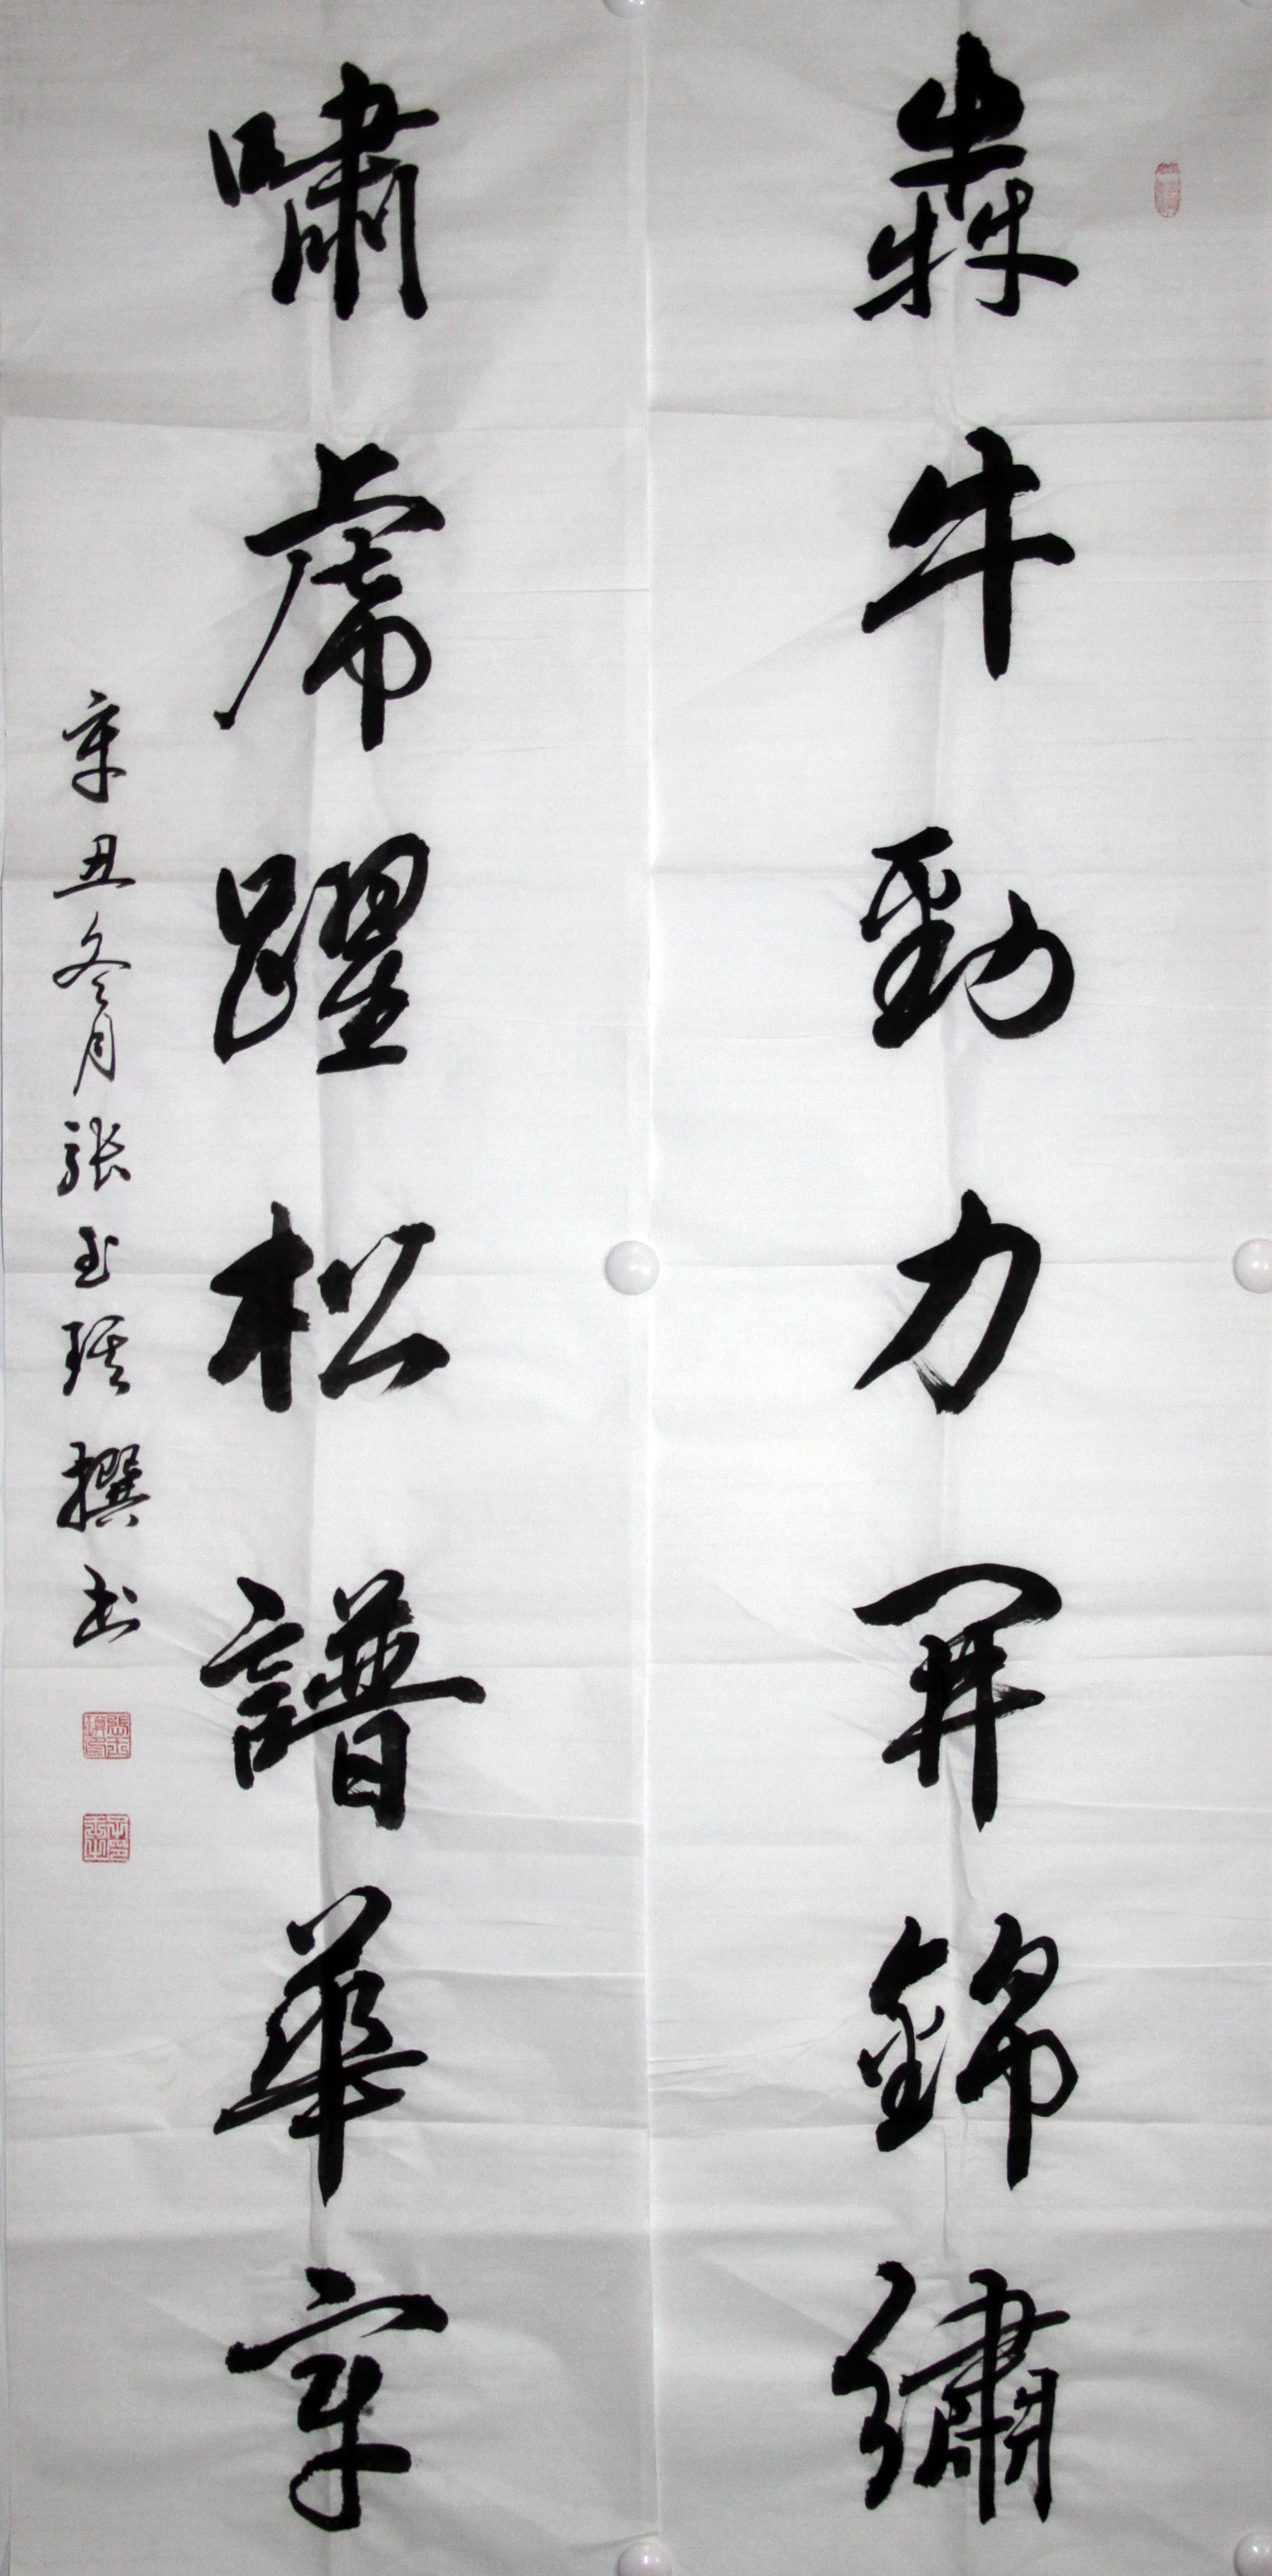 犇牛勁力開錦繡
嘯虎躍松譜華章
辛丑冬月張玉瑛撰書